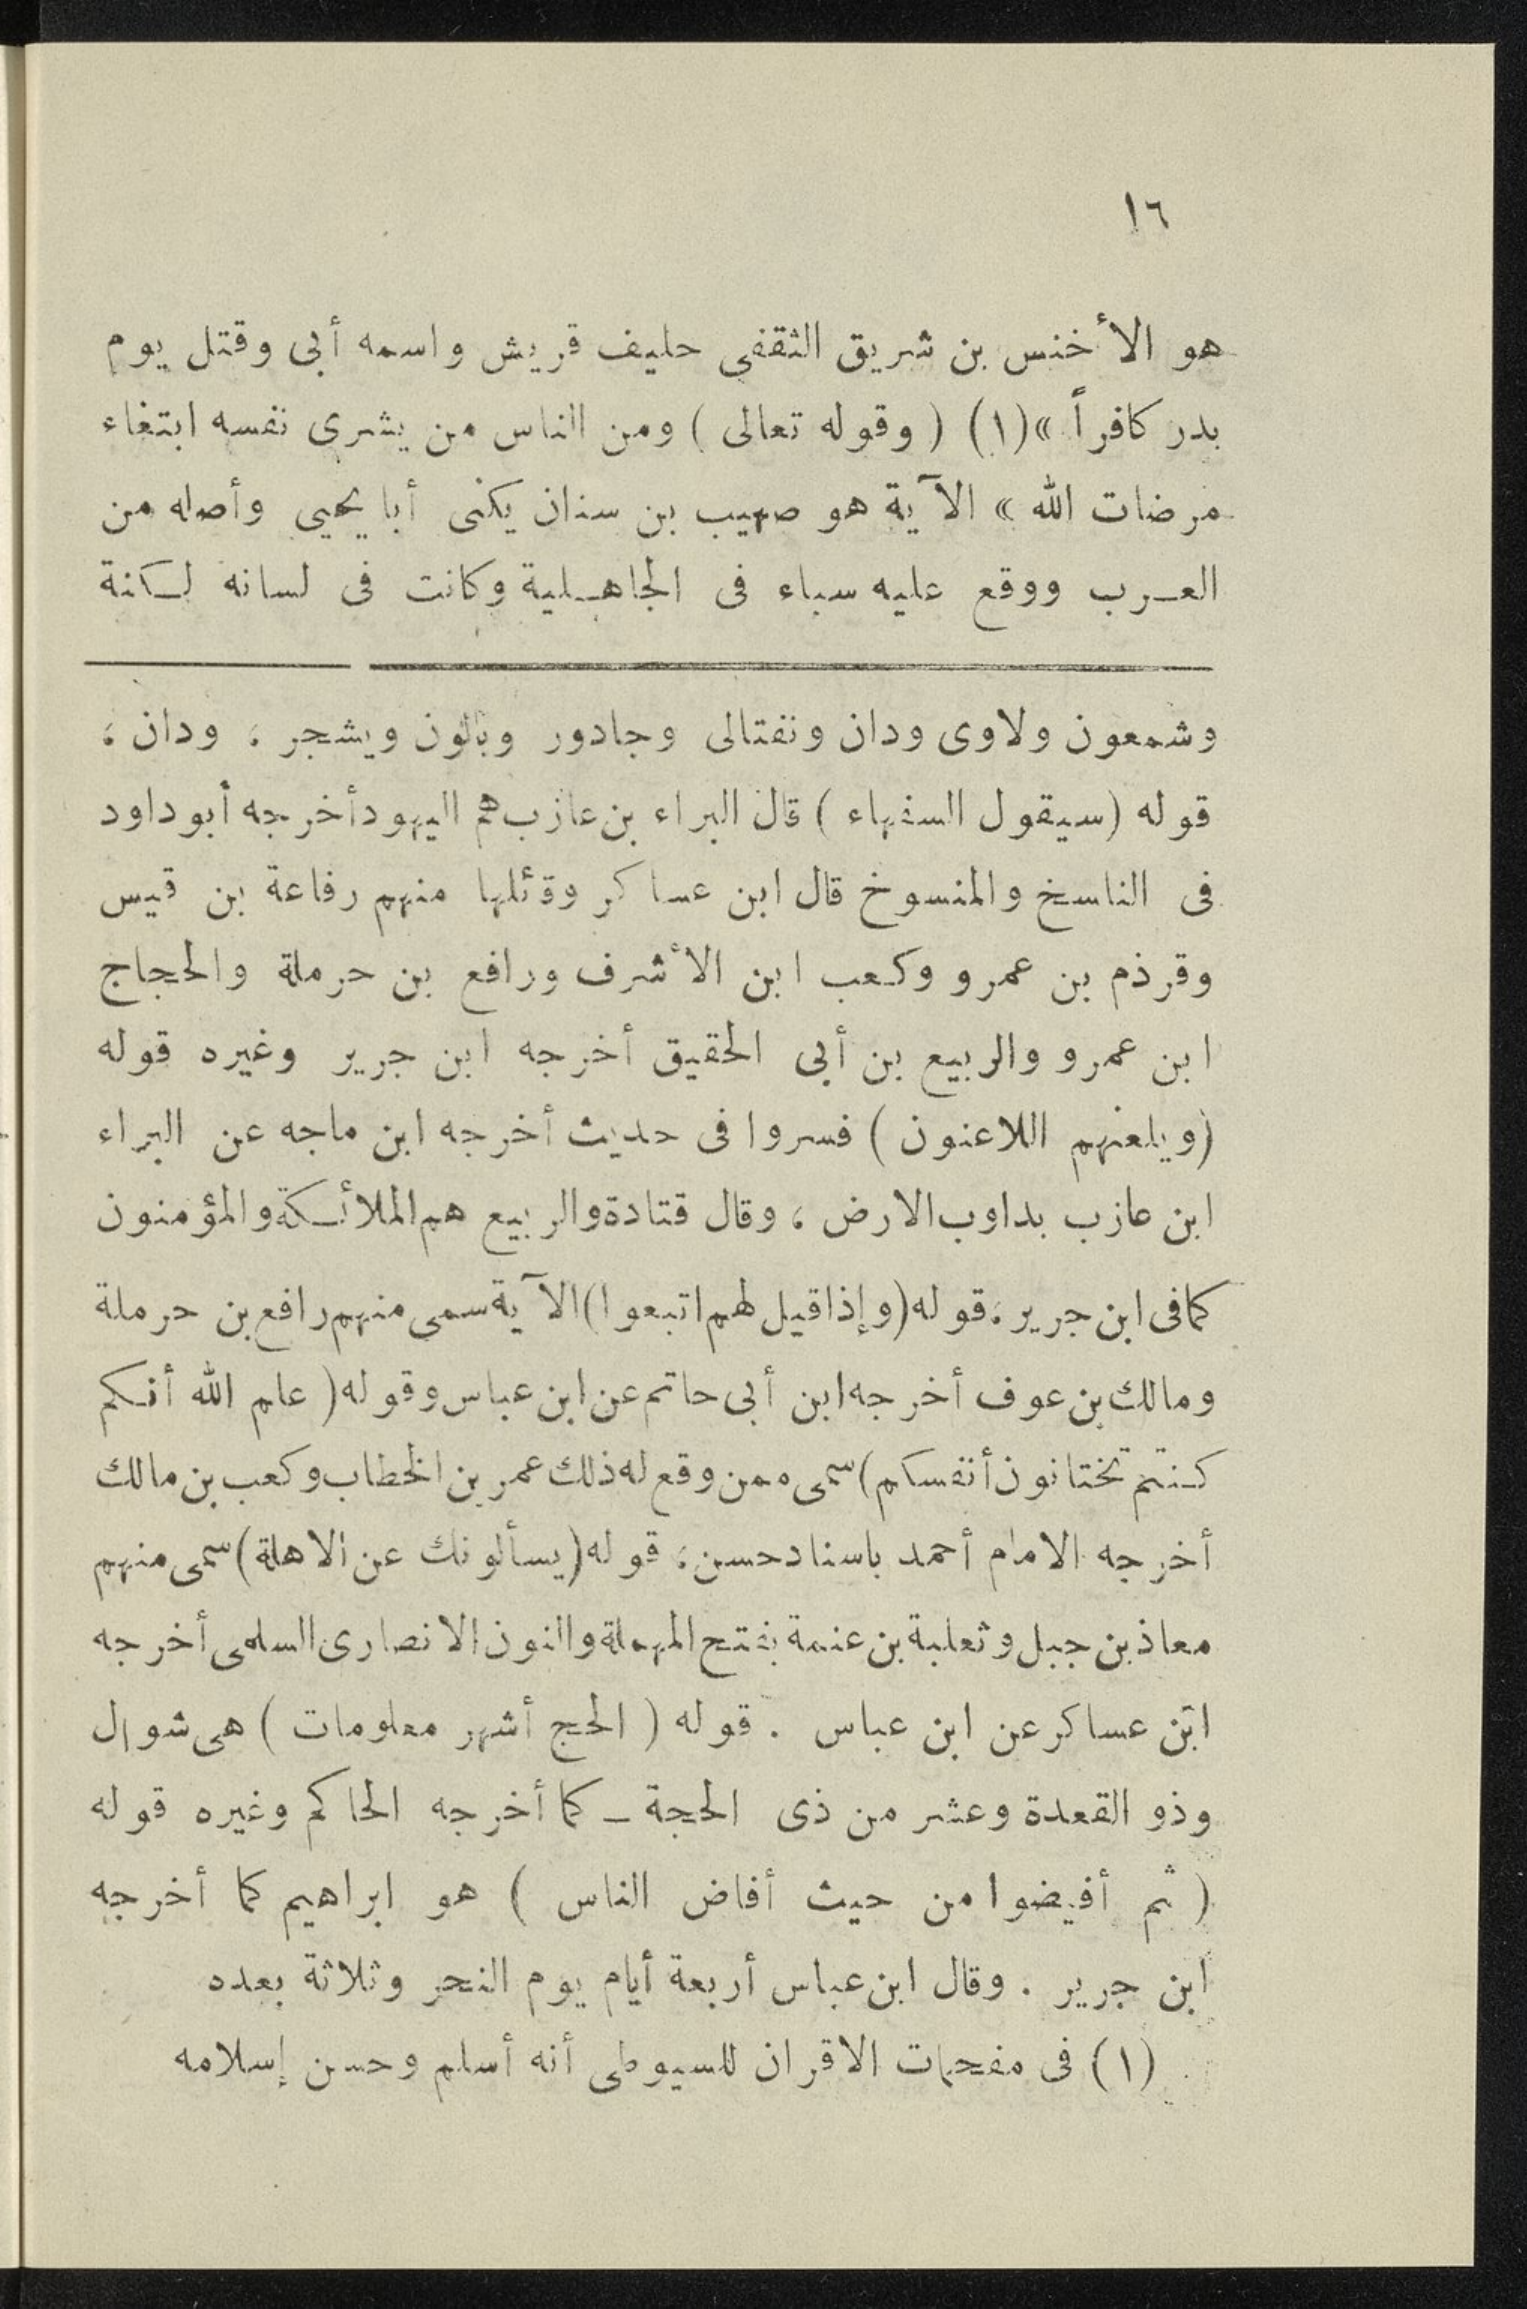 ١٦
هو الأخنس بن شريق الثقفى حليف قريش واسمه أبى وقتل يوم
بدر كافراً »(١) ( وقوله تعالى ) ومن الناس من يشرى نفسه ابتغاء
مرضات الله » الآية هو صهيب بن سنان يكنى أبا يحيي وأصله من
العرب ووقع عليه سباء فى الجاهلية وكانت فى لسانه لكنة
وشمعون ولاوى ودان ونفتالى وجادور وبالون ويشجر ، ودان ،
قوله (سيقول السفهاء ) قال البراء بن عازب هم اليهود أخرجه أبو داود
فى الناسخ والمنسوخ قال ابن عساكر وقائلها منهم رفاعة بن قيس
وقرذم بن عمرو وكعب ابن الأشرف ورافع بن حرملة والحجاج
ابن عمرو والربيع بن أبى الحقيق أخرجه ابن جرير وغيره قوله
(ويلعنهم اللاعنون ) فسروا فى حديث أخرجه ابن ماجه عن البراء
ابن عازب بداوب الارض ، وقال قتادة والربيع هم الملائكة والمؤمنون
كما فى ابن جرير ، قوله (وإذا قيل لهم اتبعوا) الآية سمى منهم رافع بن حرملة
ومالك بن عوف أخرجه ابن أبى حاتم عن ابن عباس وقوله ( علم الله أنكم
كنتم تختانون أنفسكم) سمى ممن وقع له ذلك عمر بن الخطاب وكعب بن مالك
أخرجه الامام أحمد باسناد حسن ، قوله (يسألونك عن الاهلة) سمى منهم
معاذ بن جبل وثعلبة بن عنمة بفتح المهملة والنون الانصارى السلمى أخرجه
ابن عساكر عن ابن عباس . قوله ( الحج أشهر معلومات ) هى شوال
وذو القعدة وعشر من ذى الحجة ــ كما أخرجه الحاكم وغيره قوله
( ثم أفيضوا من حيث أفاض الناس ) هو ابراهيم كما أخرجه
ابن جرير . وقال ابن عباس أربعة أيام يوم النحر وثلاثة بعده
(١) فى مفحمات الاقران للسيوطى أنه أسلم وحسن إسلامه